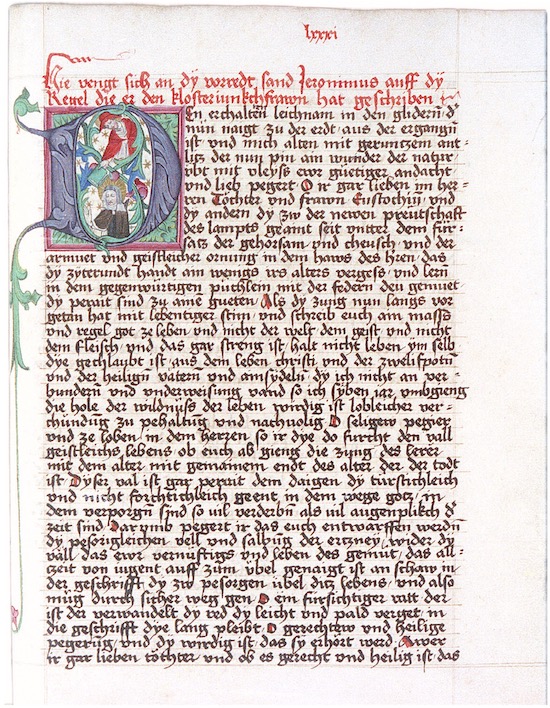 lxxxi
Hie vengt sich an dy vorredt sand Jeronimus auff dy
Regel die er den klosteriunkchfrawn hat geschriben
En erchalten leichnam in den glidern d'
nun naigt zu der erdt aus der ergangn̄
ist und mich alten mit geruntzem ant-
litz der nun pin am wunder der natur
vbt mit vleyss ewr guetiger andacht
vnd lieb pegert O ir gar lieben im her-
ren Tochter vnd frawn Eustochiu vnd
dy andern dy zw der newen preutschaft
des lampts geamt seit vnter dem für-
satz der gehorsam vnd cheusch vnd der
armuet vnd geistleicher ornung in dem haws des hren das
dy zyterundt handt am wenigs irs alters vergess vnd lern̄
in dem gegenwurtigen püchlein mit der federn den gemuet
dy perait sind zu aim gueten Als dy zung nun langs vor
getan hat mit lebentiger stim vnd schreib euch am mass
vnd regel got ze leben vnd nicht der welt dem geist vnd nicht
dem fleisch vnd das gar streng ist halt nicht leben ym selb
dye gechlaubt ist aus dem leben christi vnd der zwelifpotn̄
vnd der heilign̄ vatern vnd amsydeln̄ dy ich nicht an ver-
bundern vnd vnderweisung vand so ich syben iar vmbgieng
die hole der wildnüss der leben wirdig ist lobleicher ver-
chündüg zu pehaltug vnd nachuolig O seligew pegier
vnd ze loben in dem herzen so ir dye do furcht den vall
geistleichs lebens ob euch ab gieng die zung des lerer
mit dem alter mit gemainem endt des alter der der todt
ist Dyser val ist gar perait dem daigen dy türstichleich
vnd nicht forchtichleich geent in dem wege gotz in
dem verporgn̄ sind so uil verderbn̄ als uil augenplikch d'
zeit sind Darumb pegert ir das euch entwarffen werdn̄
dy pesorigleichen veil vnd salbug der ertzney wider dy
väll das ewr vernüftigs vnd leben des gemüt das all-
czeit von iugent auff zum übel genaigt ist an schaw in
der geschrifft dy zw pesorgen übel ditz lebens vnd also
müg durch sicher weg gen O ein fürsichtiger ratt der
ist der verwandelt dy red dy leicht vnd pald verget in
die geschrifft dye lang pleibt O gerechtew vnd heilige
pegerūg vnd dy wirdig ist das sy erhört werd Awer
ir gar lieben töchter vnd ob es gerecht vnd heilig ist das